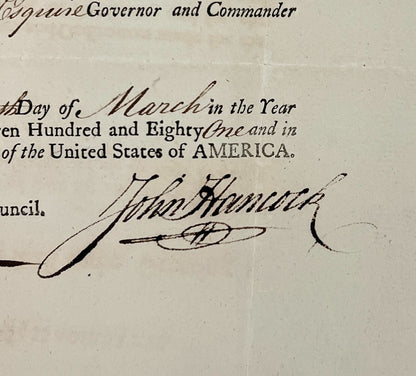 Esquire Governor and Commander
th Day of March in the Year
en Hundred and Eighty One and in
of the United States of AMERICA.
uncil. John Hancock